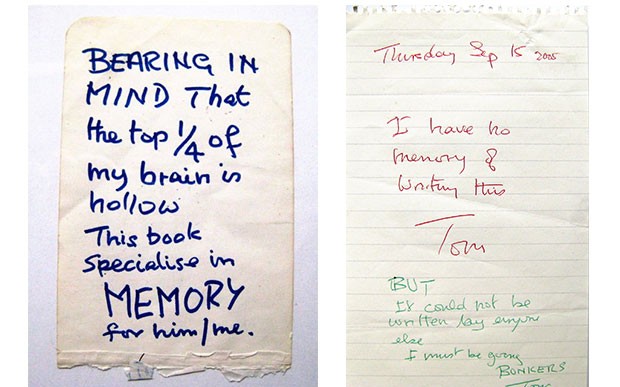 BEARING IN
MIND That
the top 1/4 of
my brain is
hollow
This book
specialise in
MEMORY
for him/me.
Thursday Sep 15 2005
I have no
memory of
writing this
Tom
BUT
It could not be
written by anyone
else
I must be going
BONKERS
Tom